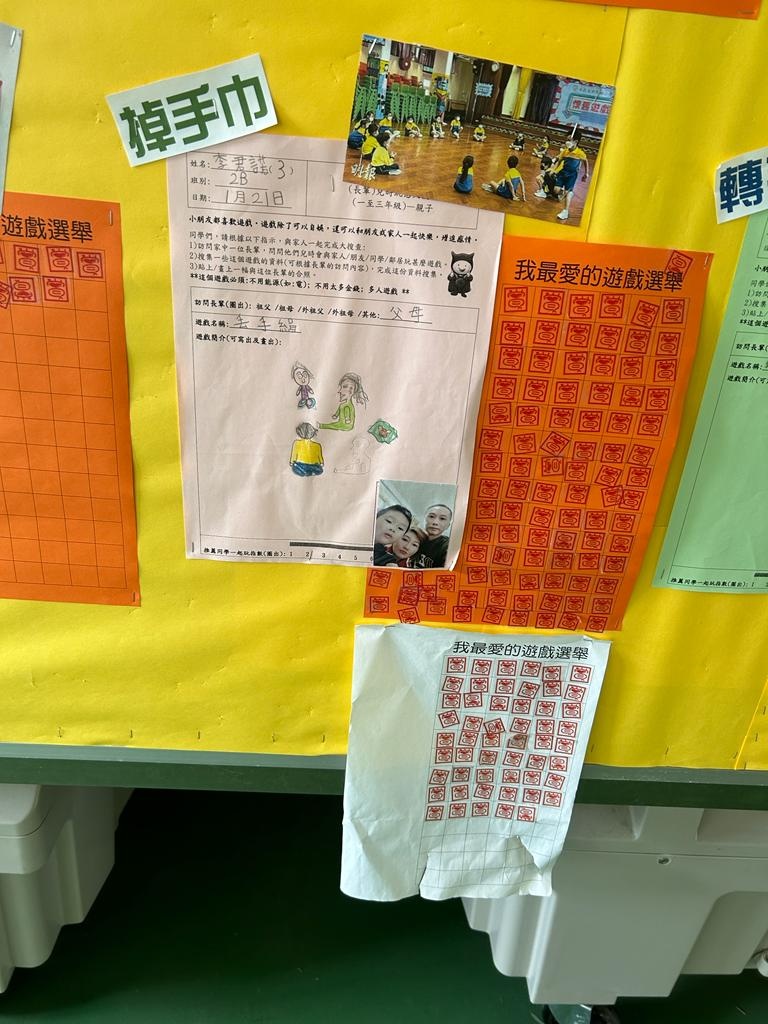 掉手巾
明報
懷舊遊戲
姓名: 李君諾(3)
班別: 2B
日期: 1月21日
(一至三年級)—親子
小朋友都喜歡遊戲，遊戲除了可以自娛，還可以和朋友或家人一起快樂，增進感情。
同學們，請根據以下指示，與家人一起完成大搜查:
1)訪問家中一位長輩，問問他們兒時會與家人/朋友/同學/鄰居玩甚麼遊戲。
2)搜集一些這個遊戲的資料(可根據長輩的訪問內容)，完成這份資料搜集。
3)貼上/畫上一幅與這位長輩的合照。
**這個遊戲必須:不用能源(如:電); 不用太多金錢; 多人遊戲 **
訪問長輩(圈出): 祖父 /祖母 /外祖父 /外祖母 /其他: 父母
遊戲名稱: 丟手絹
遊戲簡介(可寫出及畫出):
推薦同學一起玩指數(圈出): 1 2 3 4 5 6
戲選舉
我最愛的遊戲選舉
我最愛的遊戲選舉
轉
小朋
同學
1)訪
2)搜集
3)貼上/
**這個
訪問長輩(
遊戲名稱:
遊戲簡介(可
推薦同學一起玩指數(圈出): 1